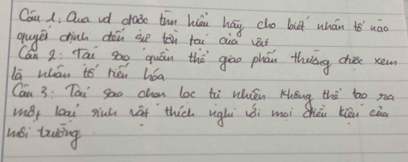 Câu 1. Qua vd được tìm hiểu hãy cho biết nhân tố nào
quyết định đến sự tồn tại của vật
Câu 2: Tại sao quần thể giao phấn thường được xem
là nhân tố tiến hóa
Câu 3: Tại sao chọn lọc tự nhiên không thể tạo ra
một loài sinh vật thích nghi với mọi điều kiện của
môi trường